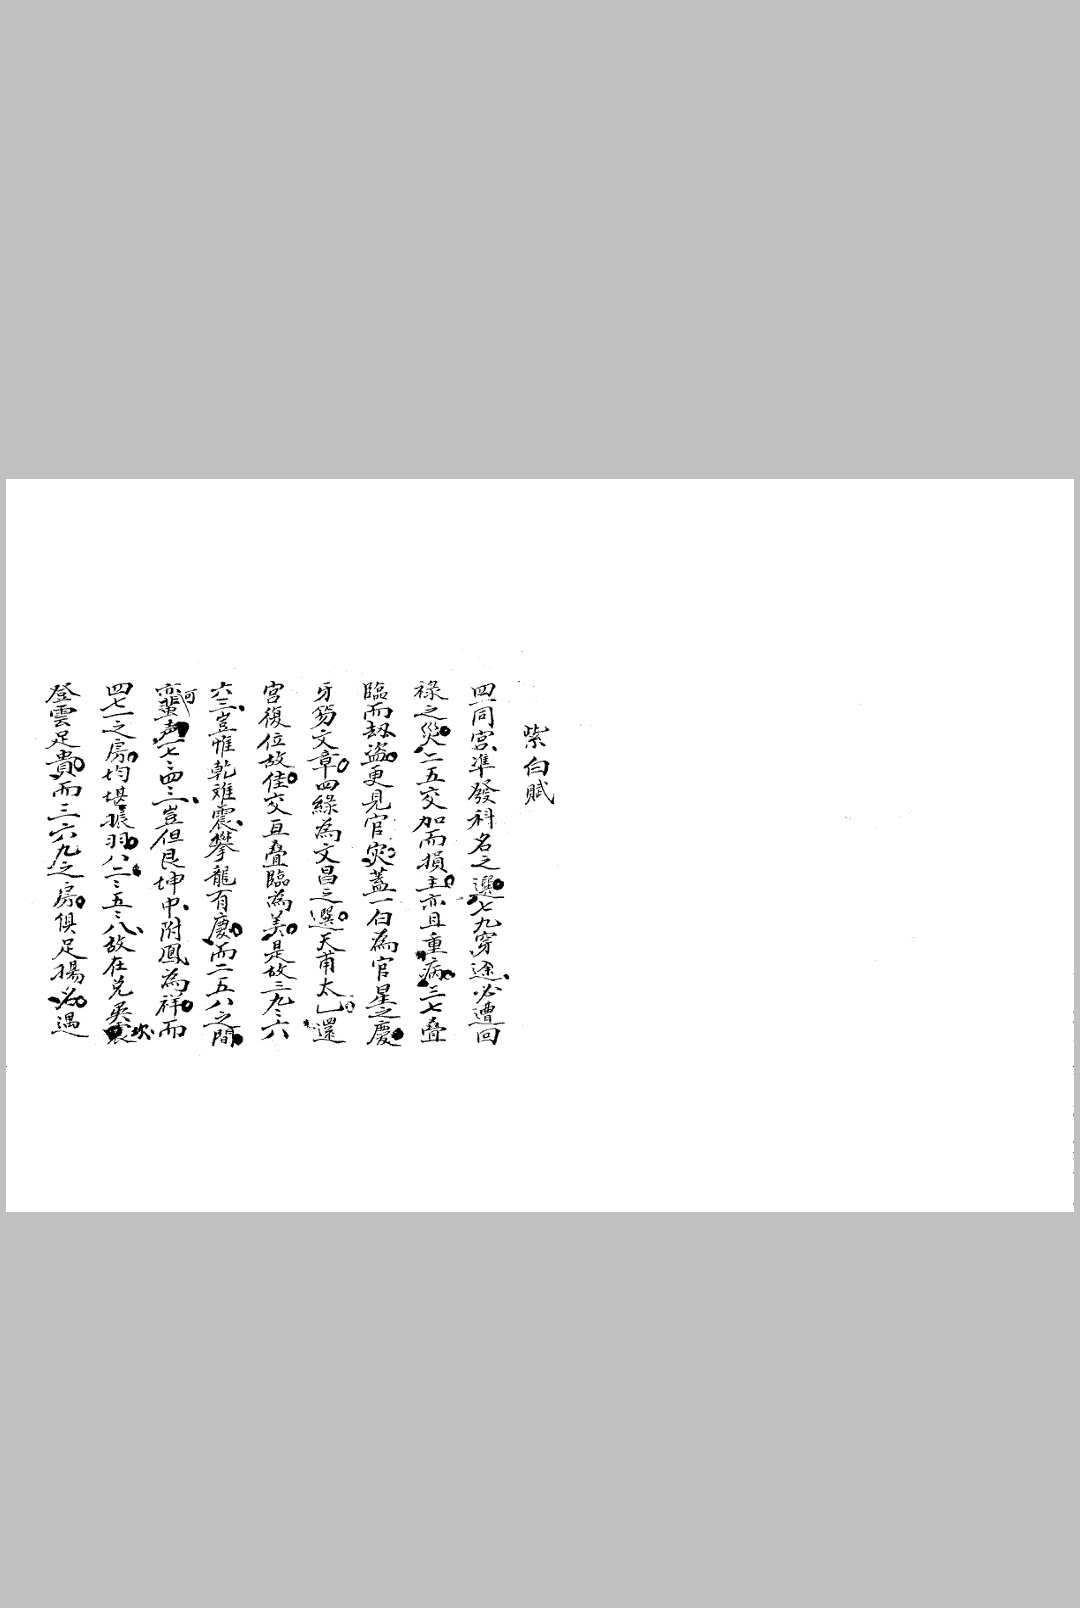 紫白賦
四一同宮、準發科名之選。七九穿途、必遭回
祿之災。二五交加而損主。亦且重病。三七叠
臨而劫盗。更見官灾。蓋一白為官星之慶。
牙笏文章。四綠為文昌之選。天甫太乙還
宮復位故佳。交亘叠臨為美。是故三九、六
六三、豈惟乾难震、攀龍有慶。而二五八之間。
蛩可声。一七、四三、豈但艮坤中、附鳳為祥。而
四七一之房。均堪振羽。八二、五八、故在兑巽震坎
登雲足貴。而三六九之房。俱足揚名。遇